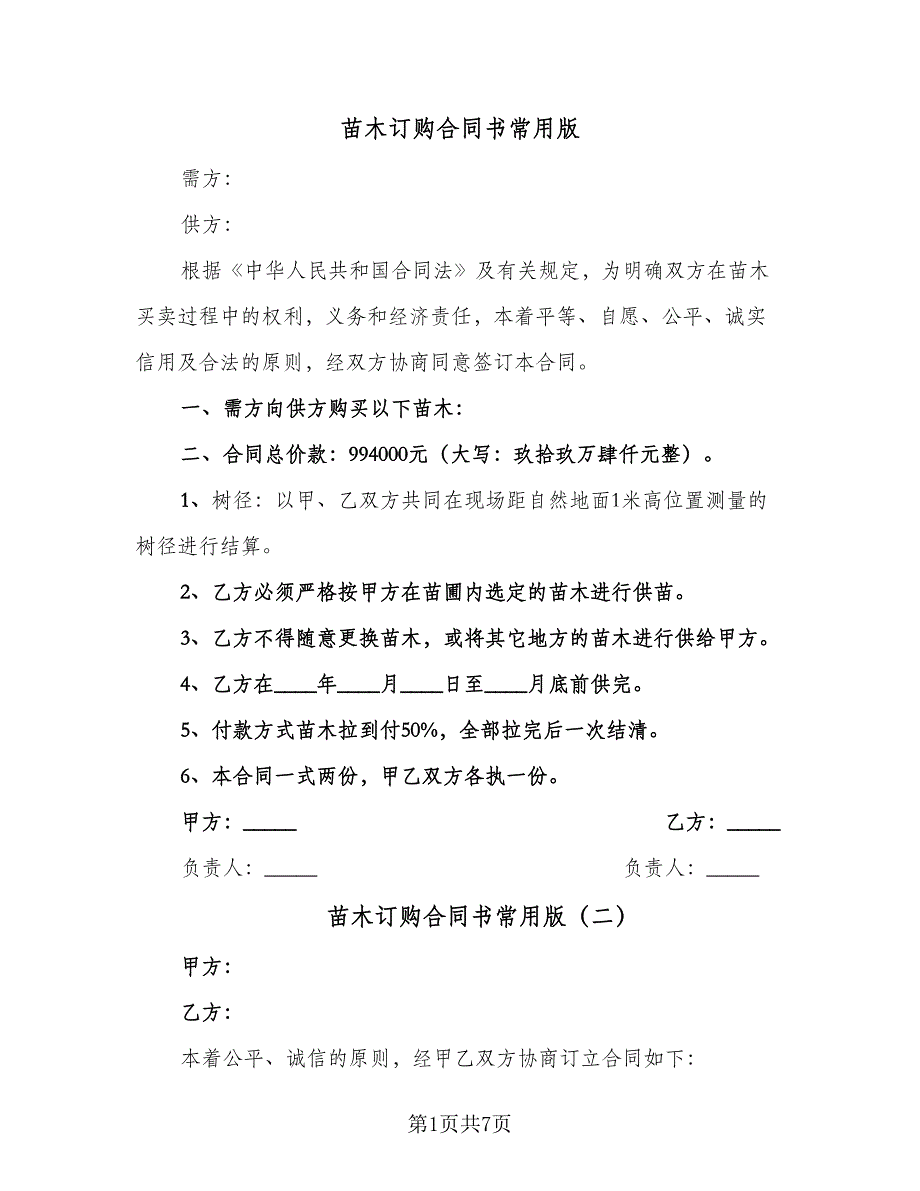 苗木订购合同书常用版
需方：
供方：
根据《中华人民共和国合同法》及有关规定，为明确双方在苗木
买卖过程中的权利，义务和经济责任，本着平等、自愿、公平、诚实
信用及合法的原则，经双方协商同意签订本合同。
一、需方向供方购买以下苗木：
二、合同总价款：994000元（大写：玖拾玖万肆仟元整）。
1、树径：以甲、乙双方共同在现场距自然地面1米高位置测量的
树径进行结算。
2、乙方必须严格按甲方在苗圃内选定的苗木进行供苗。
3、乙方不得随意更换苗木，或将其它地方的苗木进行供给甲方。
4、乙方在____年____月____日至____月底前供完。
5、付款方式苗木拉到付50%，全部拉完后一次结清。
6、本合同一式两份，甲乙双方各执一份。
甲方：_____ 乙方：_____
负责人：_____ 负责人：_____
苗木订购合同书常用版（二）
甲方：
乙方：
本着公平、诚信的原则，经甲乙双方协商订立合同如下：
第1页共7页